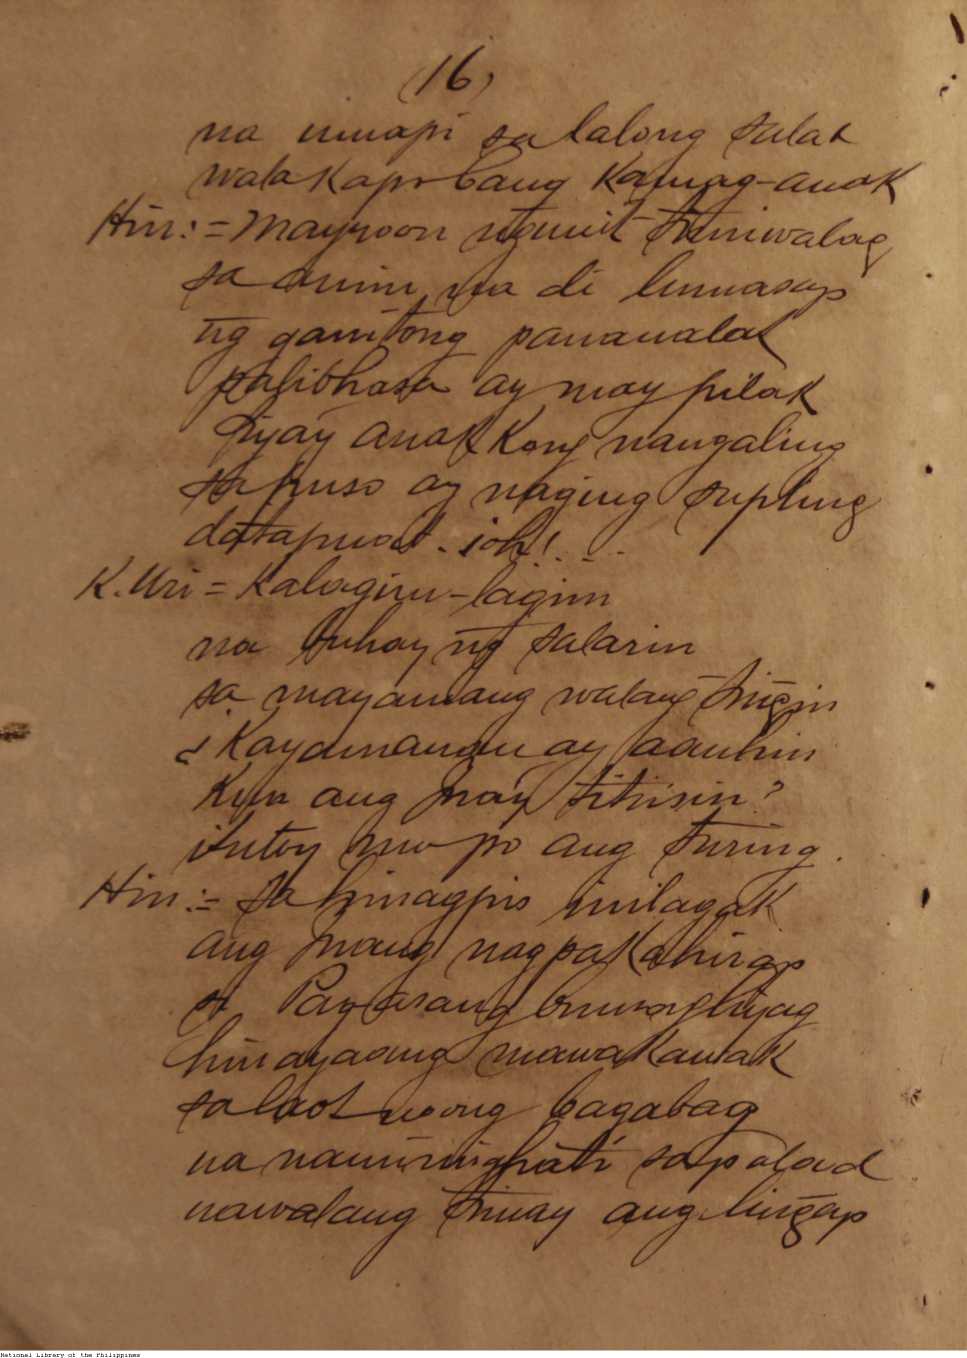 (16)
na umapi sa lalong salat
wala kapo bang kamag-anak
Hin: = Mayroon nguni't tumiwalag
sa amin, na di lumasap
ng ganitong pananalat
palibhasa ay may pilak
Iyay anak kong nangaling
sa puso ay naging supling
datapuat. ¡oh! . . .
K. Uri = Kalagim-lagim
na buhay ng salarin
sa mayamang walang tiñgin
¿Kayamanan ay aanhin
Kun ang may titisin?
itutoy mo po ang turing.
Hin: = Sa hinagpis inilagak
ang inang nagpakahirap
sa Pag-asang
hinayaang mawakawak
sa laot noong bagabag
na naminighati sa palad
nawalang tunay ang lingap
National Library of the Philippines